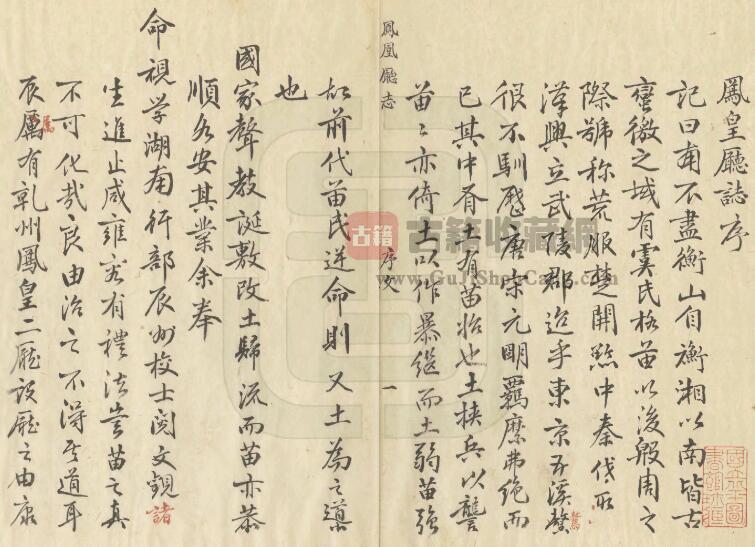 鳳皇廳誌序
記曰南不盡衡山自衡湘以南皆古
蠻徼之域有虞氏格苗以後殷周之
際號稱荒服楚開黔中秦伐所
漢興立武陵郡迄乎東京五溪驁
很不馴歷唐宋元明羈縻弗絶而
已其中有土有苗始也土挾兵以讐
苗苗亦倚土以作暴繼而土弱苗強
鳳凰廳志
序文
一
故前代苗民逆命則又土為之導
也
國家聲教誕敷改土歸流而苗亦恭
順各安其業余奉
命視學湖南行部辰州校士閱文覯諸
生進止咸雍容有禮法豈苗之真
不可化哉良由治之不得其道耳
辰屬有乾州鳳皇二廳設廳之由康
古籍
古籍收藏網
www.GuJiShouCang.com